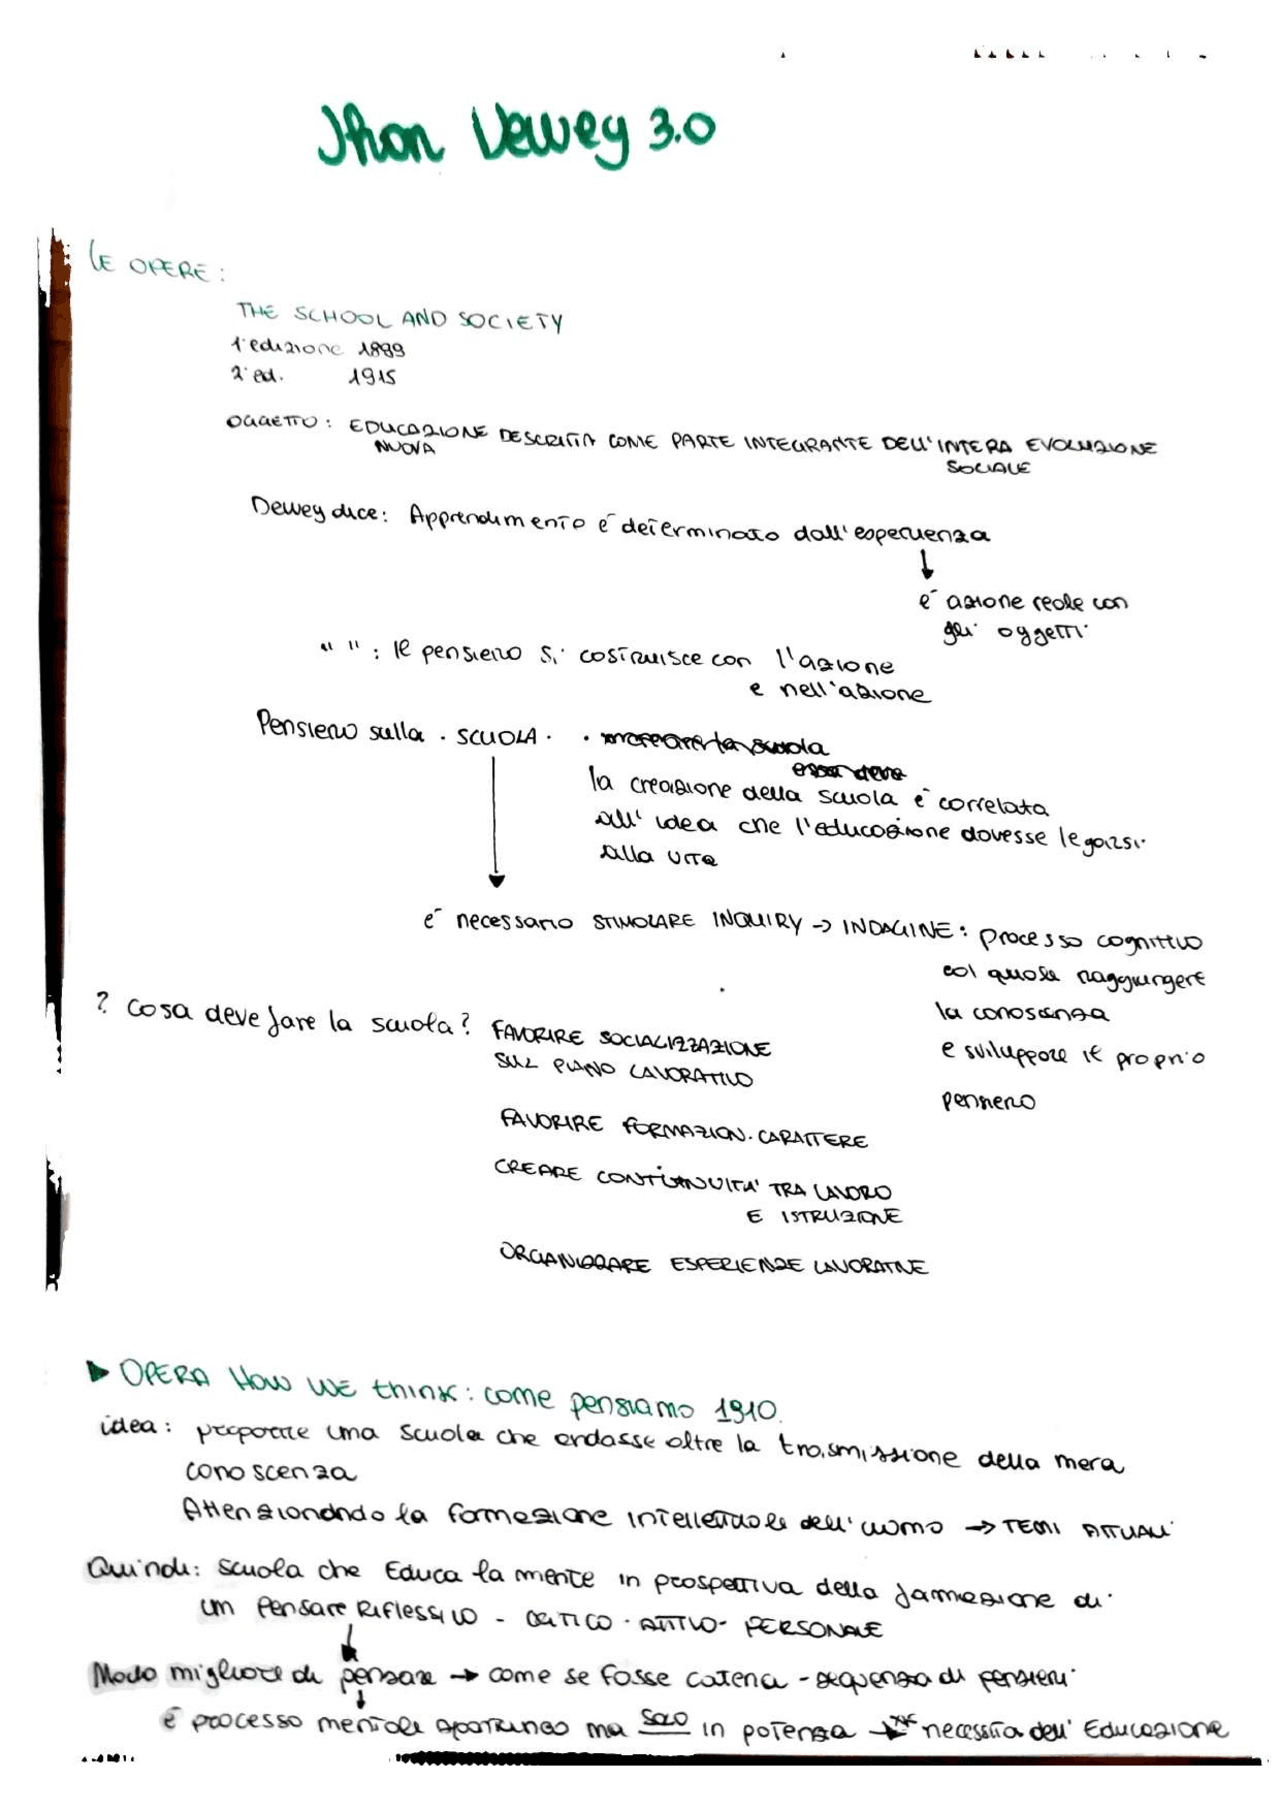 Jhon Dewey 3.0
LE OPERE:
THE SCHOOL AND SOCIETY
1ª edizione 1899
2ª ed. 1915
OGGETTO: EDUCAZIONE NUOVA DESCRITTA COME PARTE INTEGRANTE DELL'INTERA EVOLUZIONE
SOCIALE
Dewey dice: Apprendimento è determinato dall'esperienza
↓
è azione reale con
gli oggetti
" ": Il pensiero si costruisce con l'azione
e nell'azione
Pensiero sulla · SCUOLA · ·
la creazione della scuola è correlata
all'idea che l'educazione dovesse legarsi
alla vita
è necessario STIMOLARE INQUIRY → INDAGINE: processo cognitivo
col quale raggiungere
la conoscenza
e sviluppare il proprio
pensiero
? Cosa deve fare la scuola? FAVORIRE SOCIALIZZAZIONE
SUL PIANO LAVORATIVO
FAVORIRE FORMAZION. CARATTERE
CREARE CONTINUITA' TRA LAVORO
E ISTRUZIONE
ORGANIZZARE ESPERIENZE LAVORATIVE
▶ OPERA HOW WE think: come pensiamo 1910.
idea: proporre una scuola che andasse oltre la trasmissione della mera
conoscenza
Attenzionando la formazione intellettuale dell'uomo → TEMI ATTUALI
Quindi: scuola che Educa la mente in prospettiva della formazione di
un Pensare RIFLESSIVO - CRITICO - ATTIVO - PERSONALE
Modo migliore di pensare → come se fosse catena - sequenza di pensieri
è processo mentale ma SOLO in potenza → necessità dell'Educazione